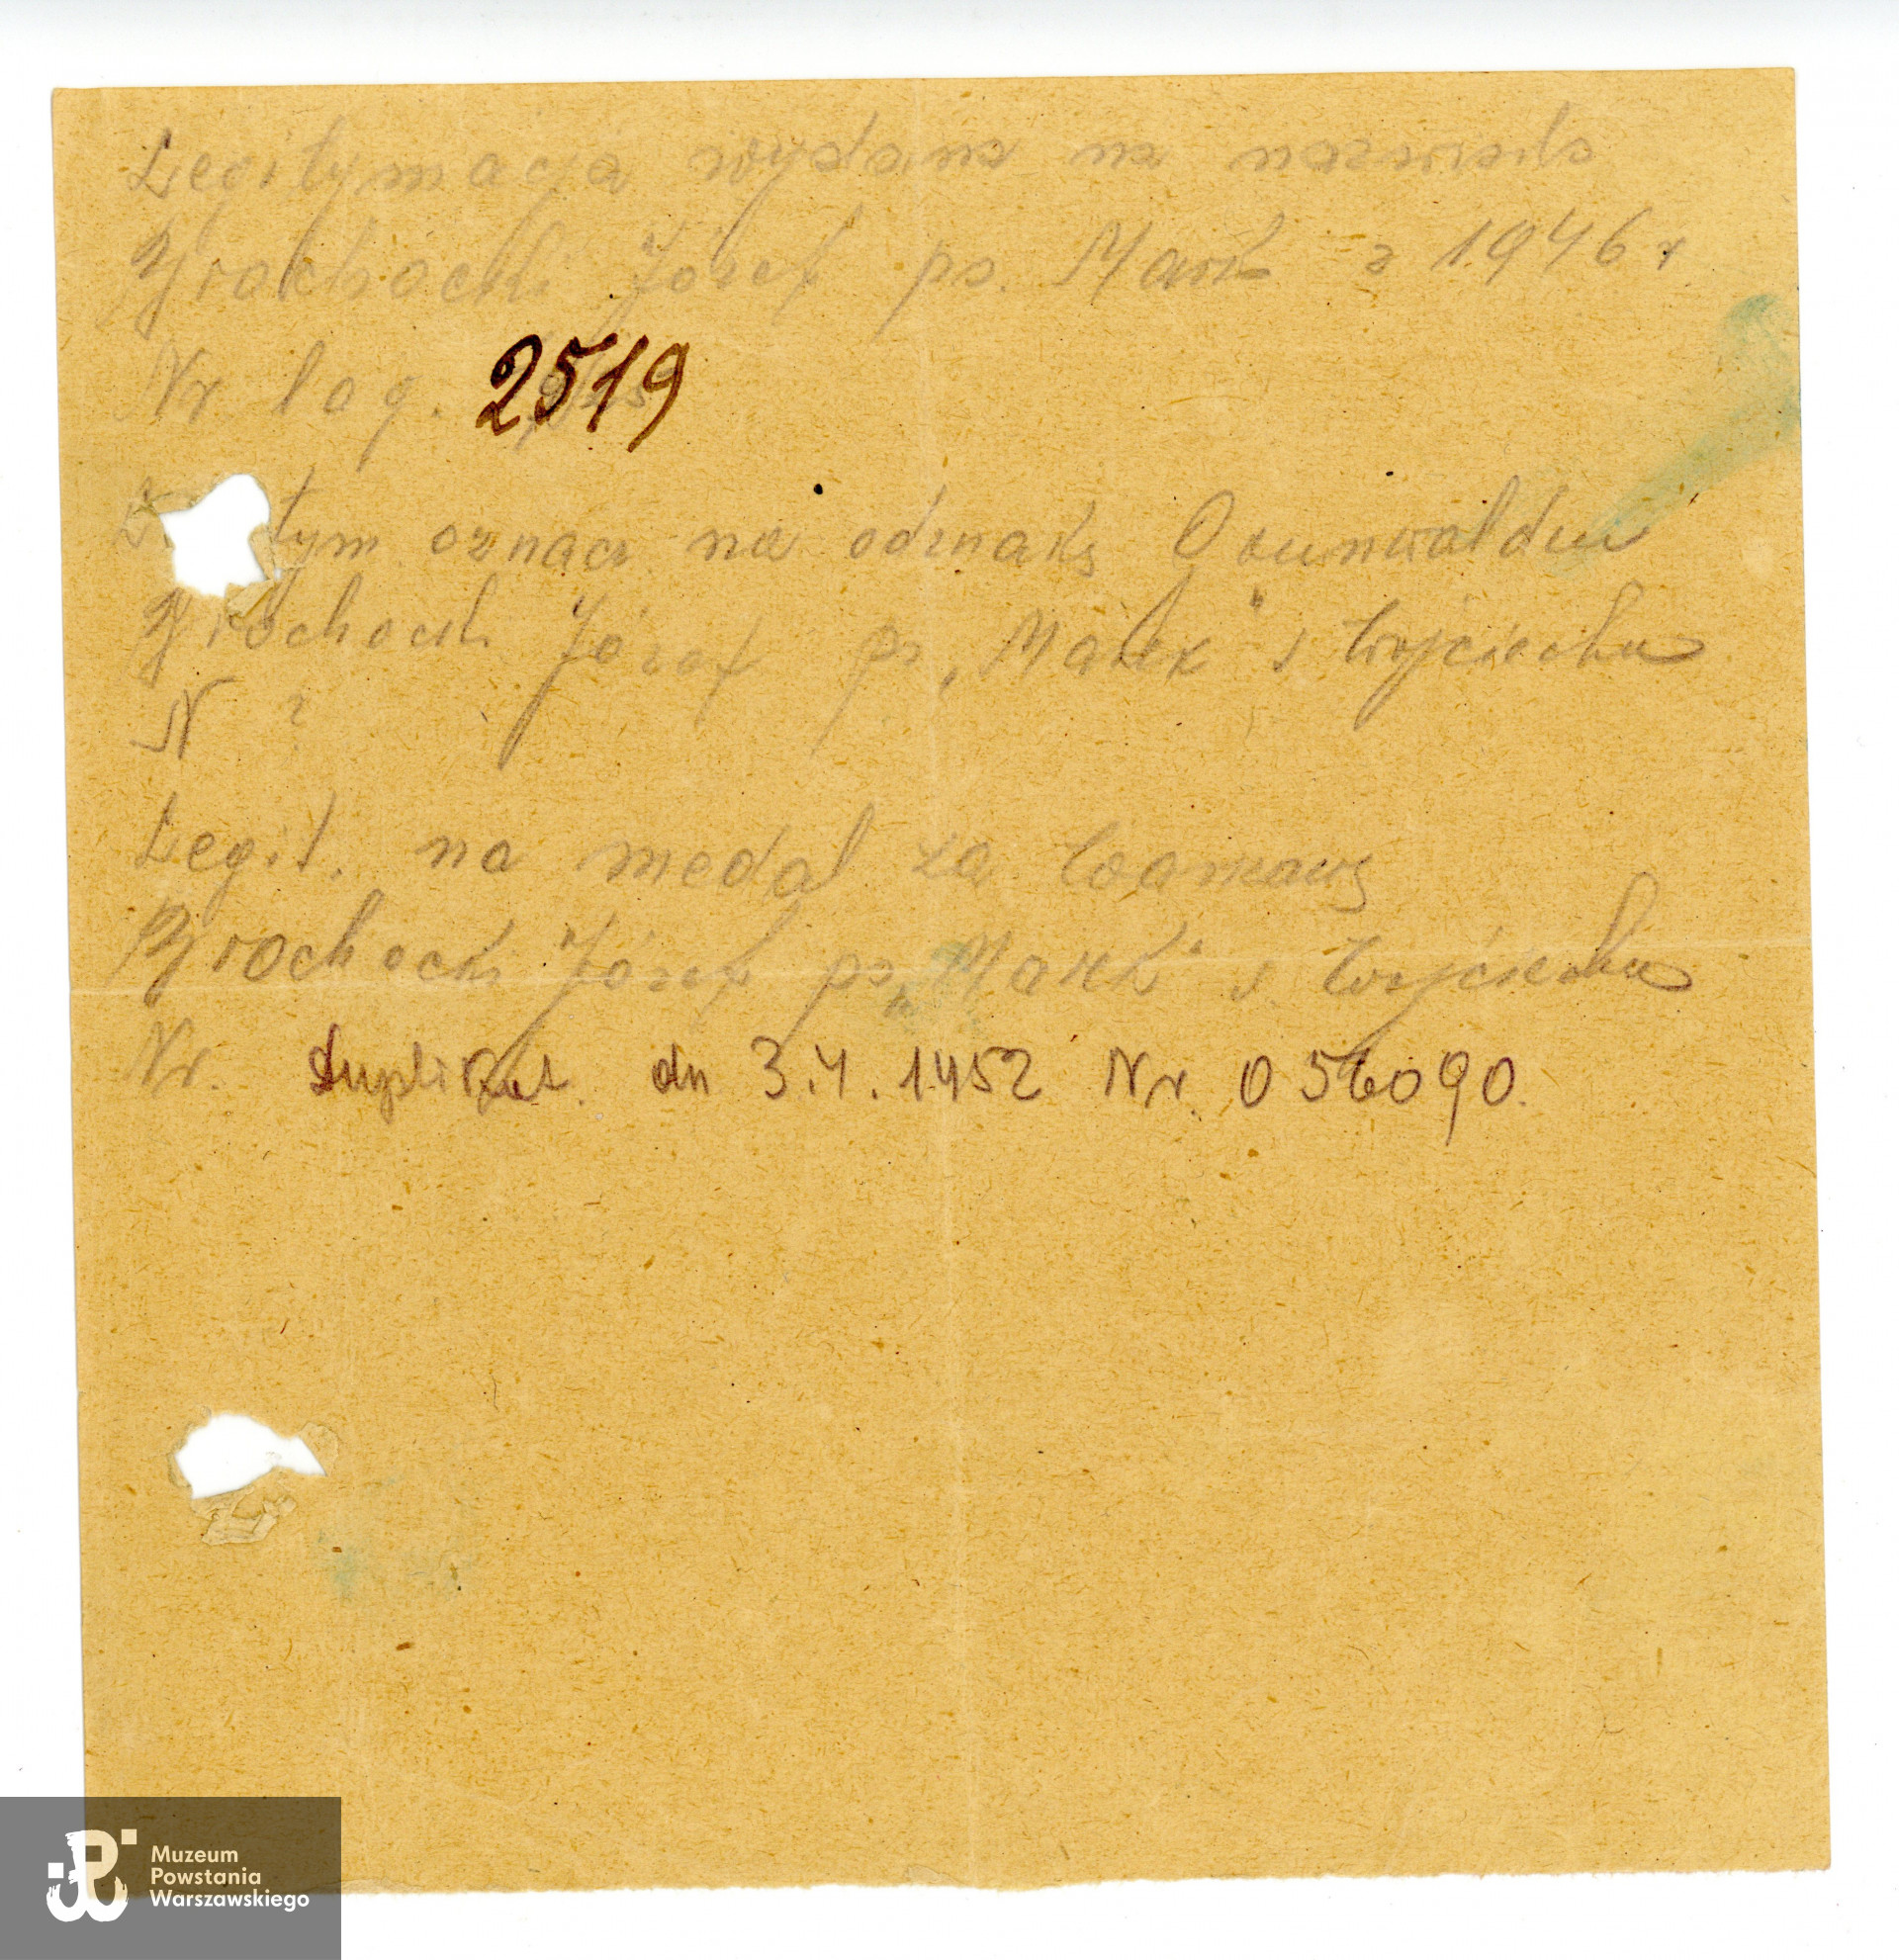 Legitymacja wydana na nazwisko
Brochocki Józef ps. Marek z 1946 r
Nr leg. 2519
tym oznacz na odznakę Grunwaldu
Brochocki Józef ps „Marek" s Wojciecha
N ?
Legit. na medal za Warszawę
Brochocki Józef ps „Marek" s Wojciecha
Nr. Duplikat. dn 3.4.1952 Nr. 056090.
Muzeum
Powstania
Warszawskiego